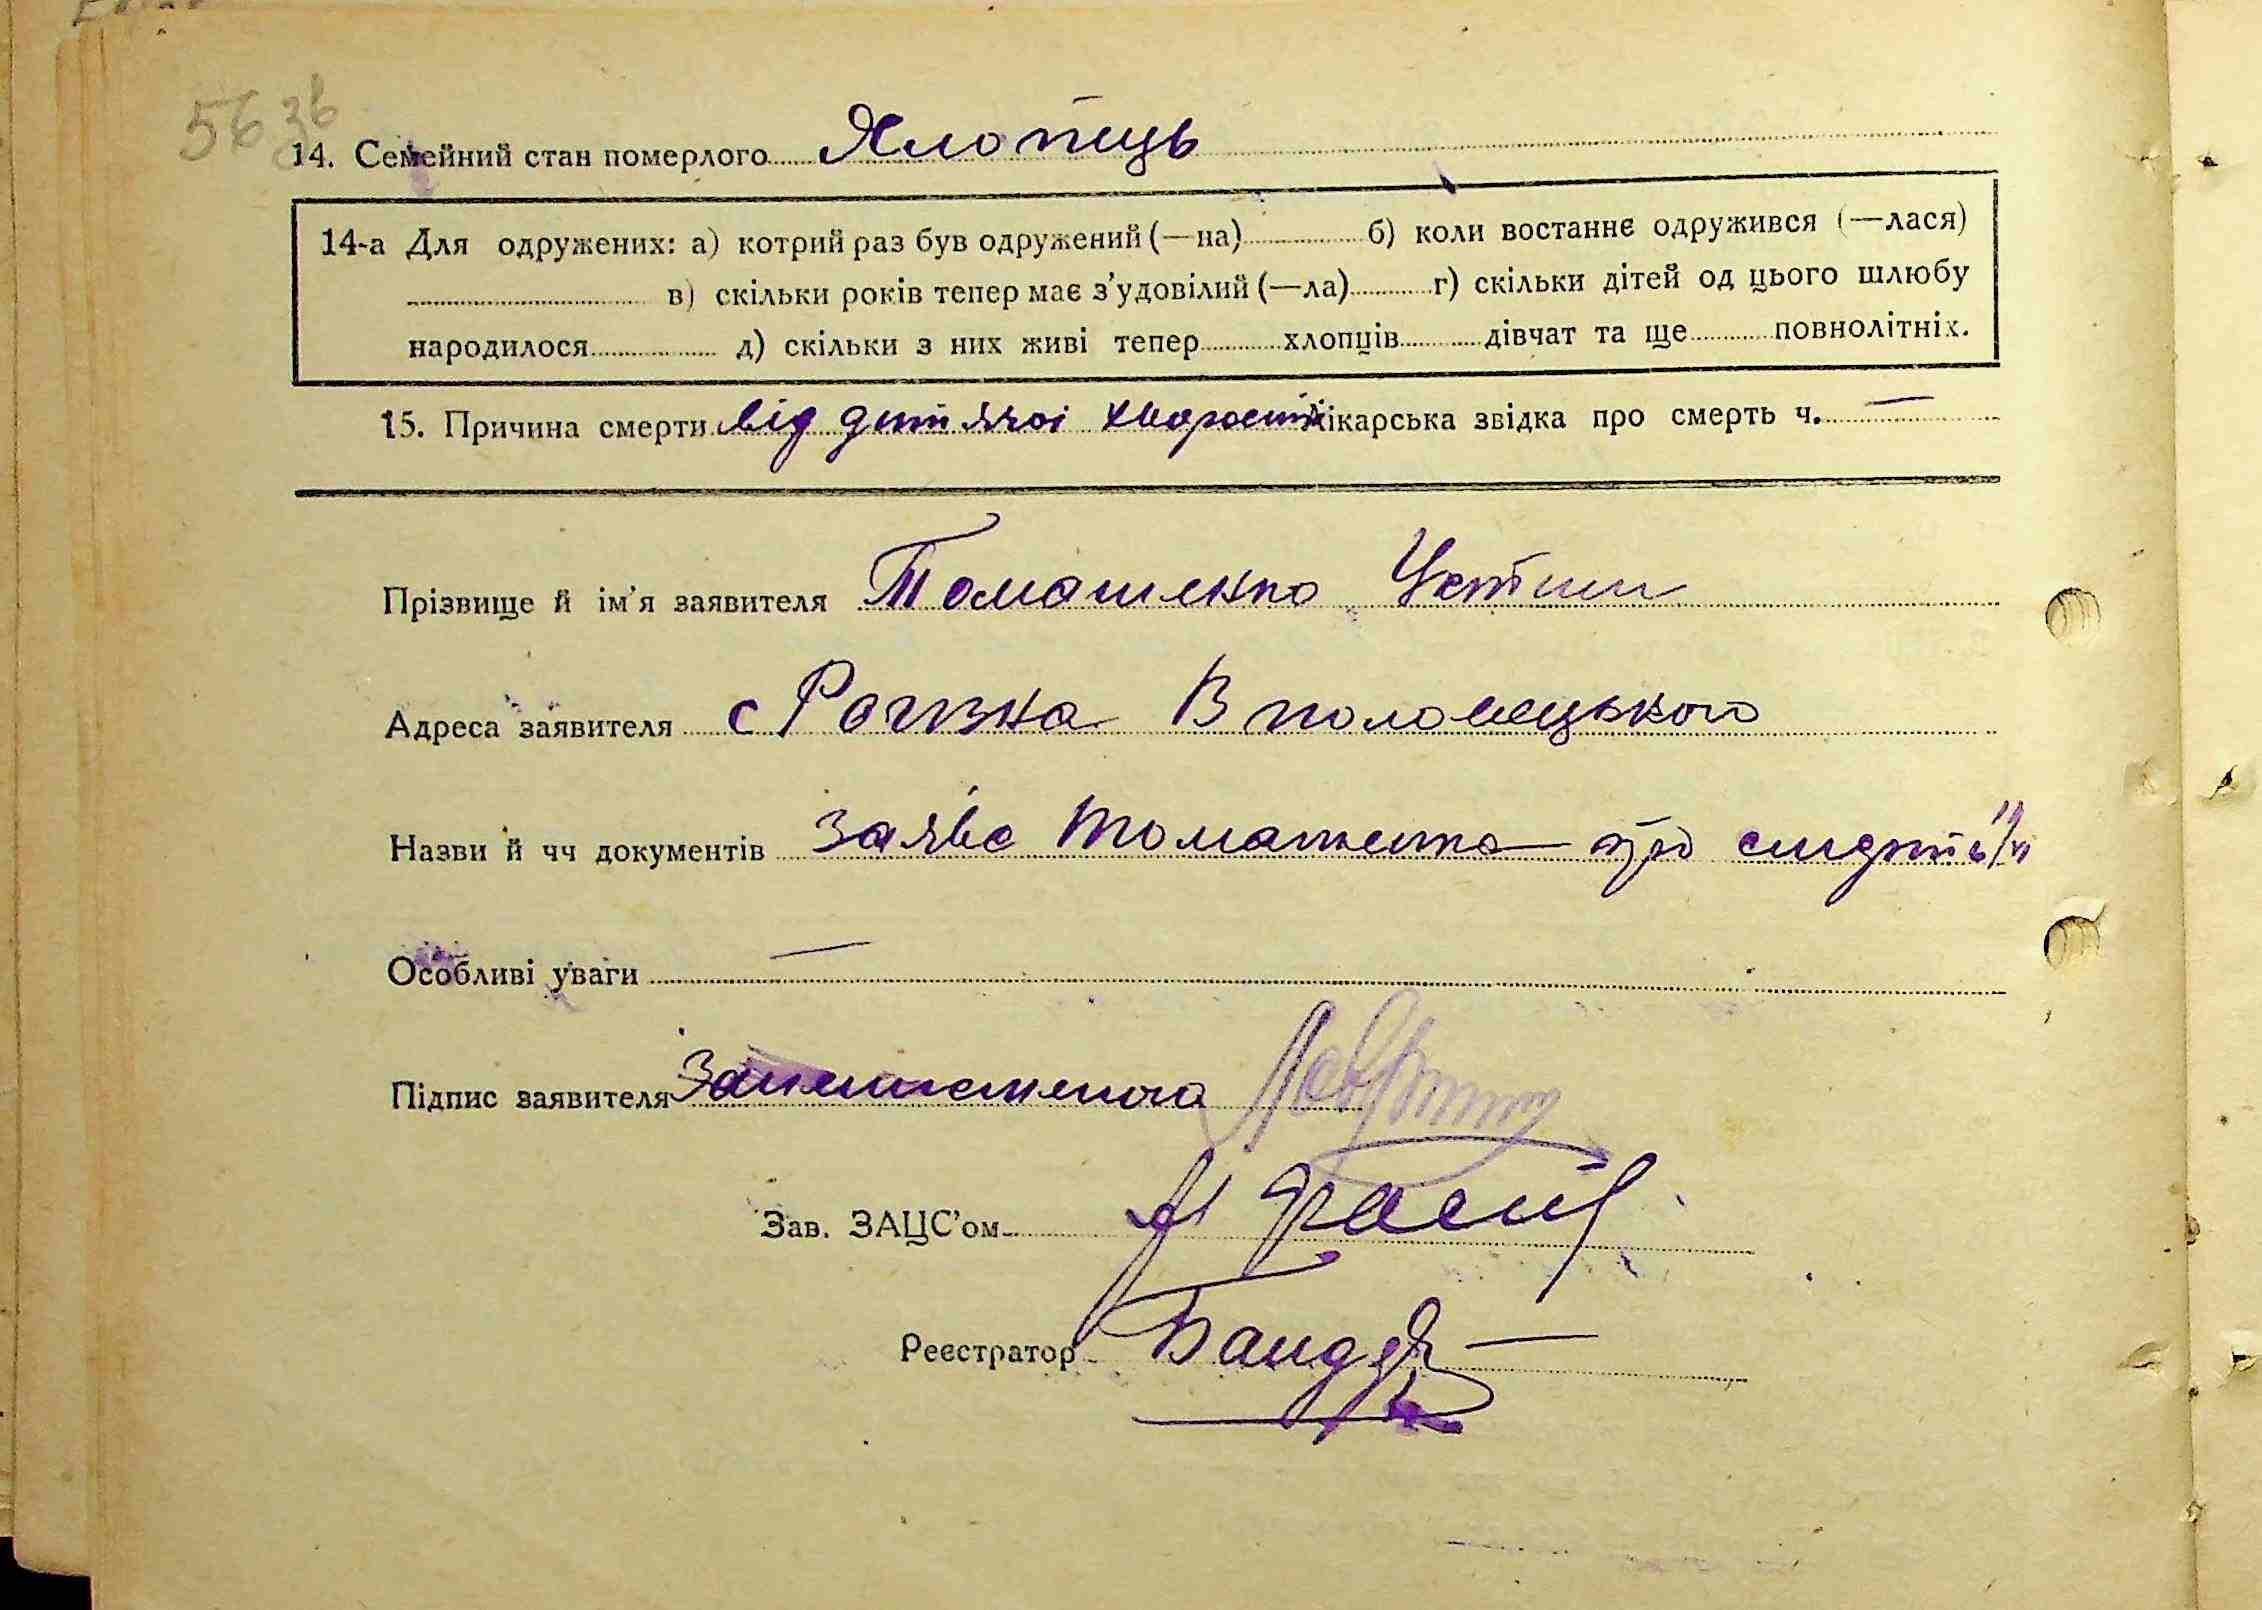 56 зв
14. Семейний стан померлого Хлопець
14-а Для одружених: а) котрий раз був одружений (—на) б) коли востаннє одружився (—лася)
в) скільки років тепер має з'удовілий (—ла) г) скільки дітей од цього шлюбу
народилося д) скільки з них живі тепер хлопців дівчат та ще повнолітніх.
15. Причина смерти від дитячої хворости Лікарська звідка про смерть ч. —
Прізвище й ім'я заявителя Томашенко Устин
Адреса заявителя с Рогизка В половецького
Назви й чч документів Заява Томашенка про смерть
Особливі уваги —
Підпис заявителя
Зав. ЗАЦС'ом
Реєстратор